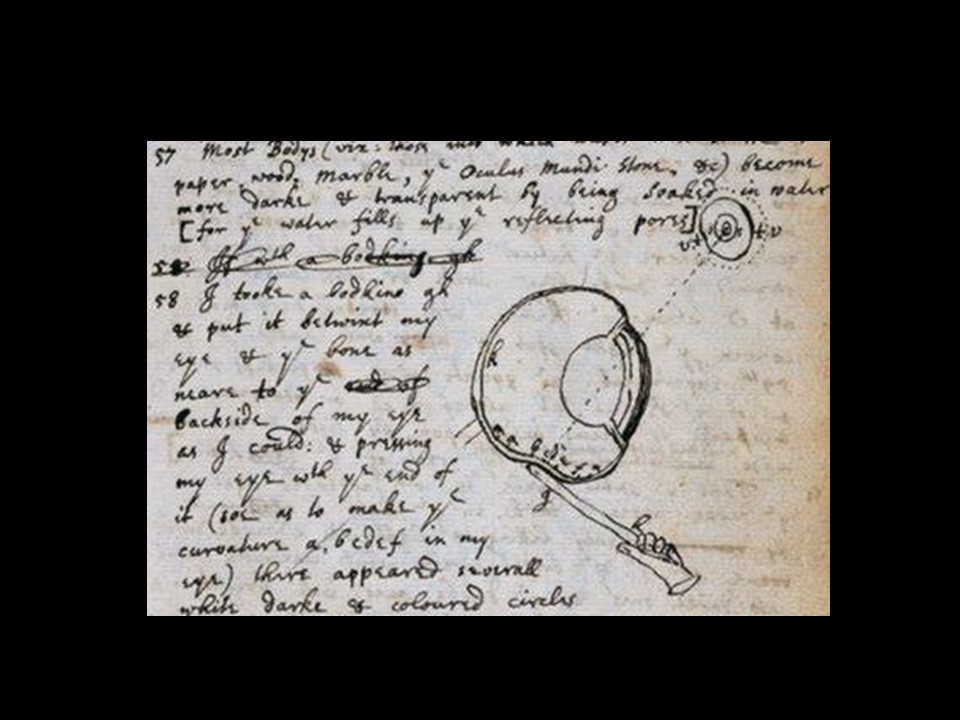 57 Most Bodys (viz: those into which water
paper, wood, Marble, yᵉ Oculus Mundi Stone, &c) become
more darke & transparent by being soaked in water
[for yᵉ water fills up yᵉ reflecting pores]
58 If wth a bodking gh
58 I tooke a bodkine gh
& put it betwixt my
eye & yᵉ bone as
neare to yᵉ end of
backside of my eye
as I could: & pressing
my eye wth yᵉ end of
it (soe as to make yᵉ
curvature a, bcdef in my
eye) there appeared severall
white darke & coloured circles
k
g
h